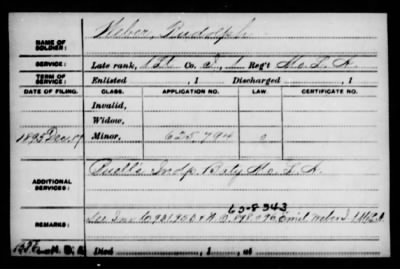 NAME OF SOLDIER: Weber, Rudolph
SERVICE: Late rank, 1 Lt Co. I, 1 Reg't Mo. L. A.
TERM OF SERVICE: Enlisted , 1 Discharged , 1
DATE OF FILING. CLASS. APPLICATION NO. LAW. CERTIFICATE NO.
Invalid,
Widow,
1895 Dec. 17 Minor, 625.794
ADDITIONAL SERVICES: Indp. Baty Mo. L. A.
65-8-343
REMARKS: Emil Weber
Died , 1 , at